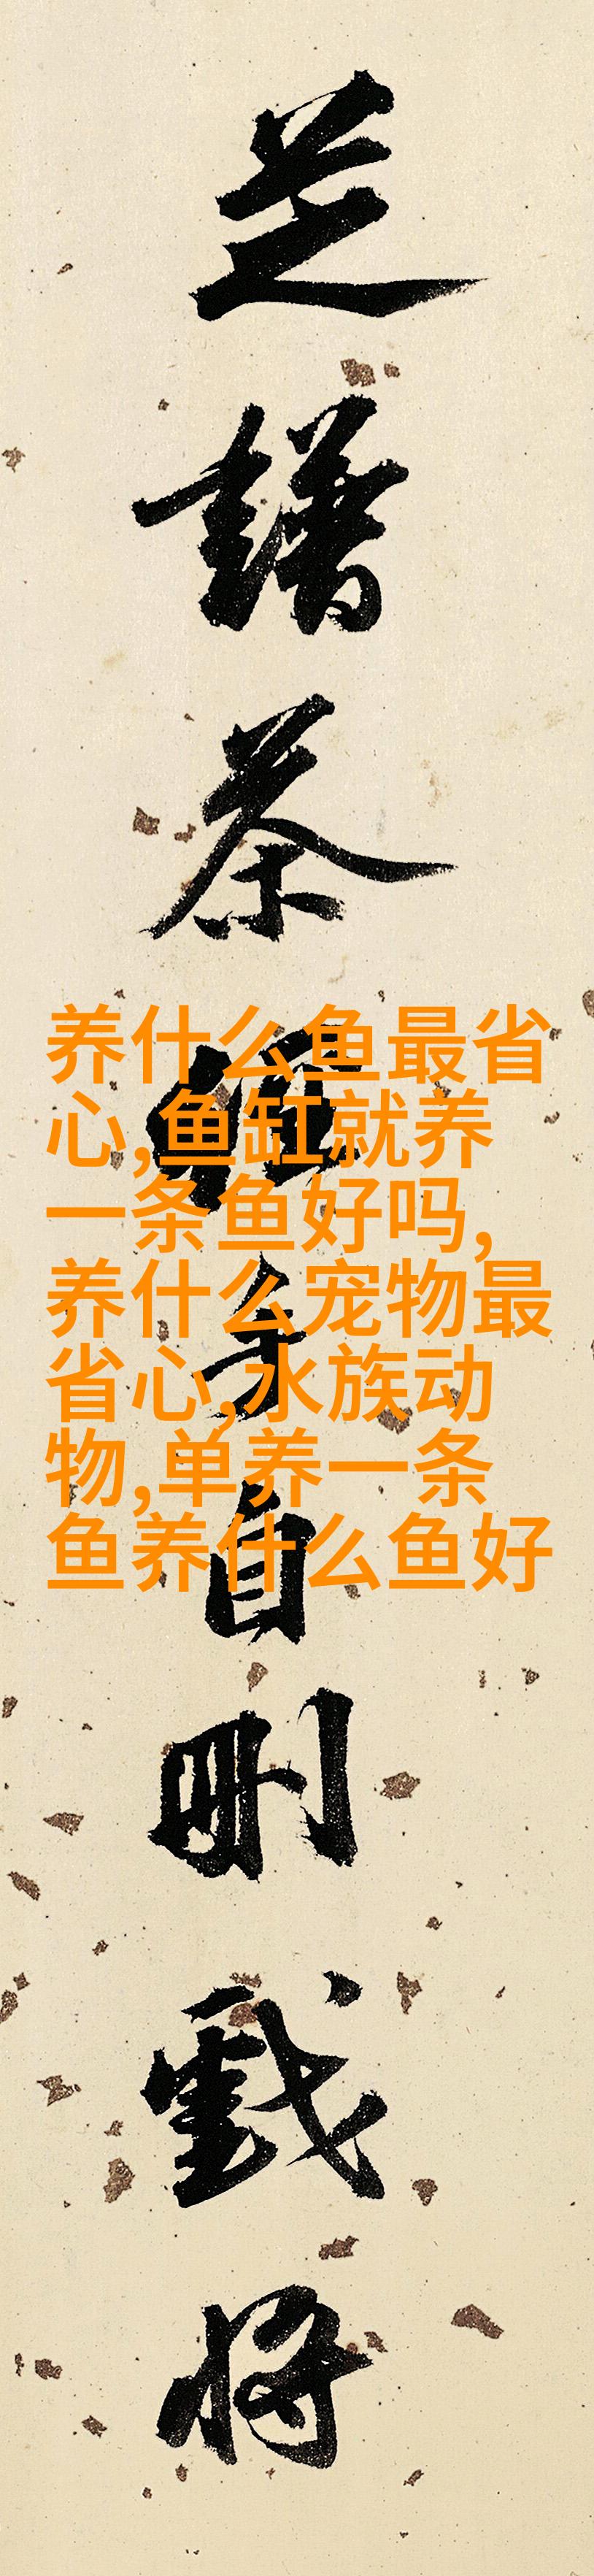 芝譜茶經手自刪戲將
养什么鱼最省
心,鱼缸就养
一条鱼好吗,
养什么宠物最
省心,水族动
物,单养一条
鱼养什么鱼好